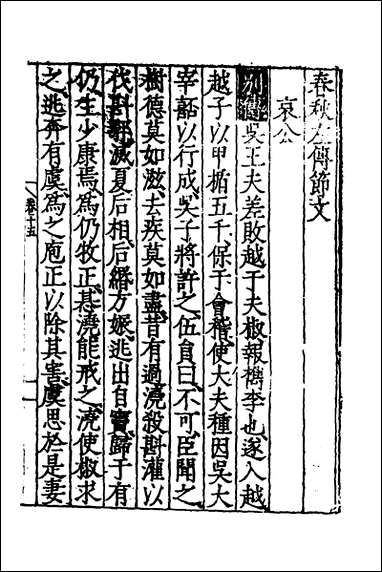 春秋左傳節文
哀公
別傳吳王夫差敗越于夫椒報檇李也遂入越
越子以甲楯五千保于會稽使大夫種因吳大
宰嚭以行成吳子將許之伍員曰不可臣聞之
樹德莫如滋去疾莫如盡昔有過澆殺斟灌以
伐斟鄩滅夏后相后緡方娠逃出自竇歸于有
仍生少康焉為仍牧正惎澆能戒之澆使椒求
之逃奔有虞為之庖正以除其害虞思於是妻
卷十五
一